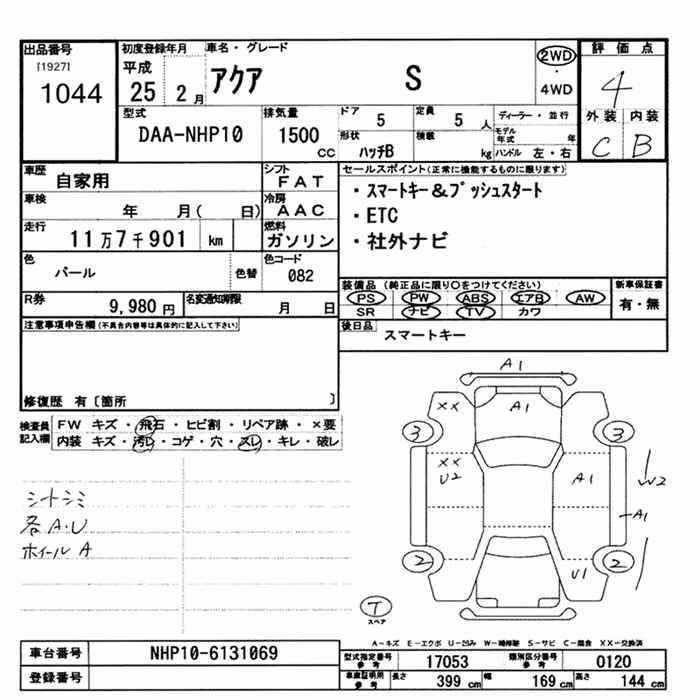 出品番号
[1927]
1044
初度登録年月
平成
25 2月
車名・グレード
アクア S
2WD
・
4WD
評価点
4
外装 内装
C B
型式
DAA-NHP10
排気量
1500
cc
ドア
5
定員
5 人
ディーラー・並行
形状
ハッチB
積載
kg
モデル年式 年
ハンドル 左・右
車歴
自家用
シフト
FAT
車検
年 月( 日)
冷房
AAC
走行
11万7千901 km
燃料
ガソリン
色
パール
色替
色コード
082
R券
9,980 円
名変通知期限
月 日
セールスポイント(正常に機能するものに限ります)
・スマートキー&プッシュスタート
・ETC
・社外ナビ
装備品(純正品に限り○をつけてください)
PS PW ABS エアB AW
SR ナビ TV カワ
新車保証書
有・無
後日品
スマートキー
注意事項申告欄(不具合内容等は具体的に記入して下さい)
修復歴 有〔箇所 〕
検査員記入欄
FW キズ・飛石・ヒビ割・リペア跡・×要
内装 キズ・汚レ・コゲ・穴・スレ・キレ・破レ
シートシミ
各A・U
ホイールA
A1
XX
A1
3
3
XX
U2
A1
W2
A1
2
U1
2
T
スペア
A-キズ E-エクボ U-凹み W-補修跡 S-サビ C-腐食 XX-交換済
車台番号
NHP10-6131069
登録番号
型式指定番号
参考
17053
類別区分番号
参考
0120
車庫証明用
参考
長さ
399 cm
幅
169 cm
高さ
144 cm